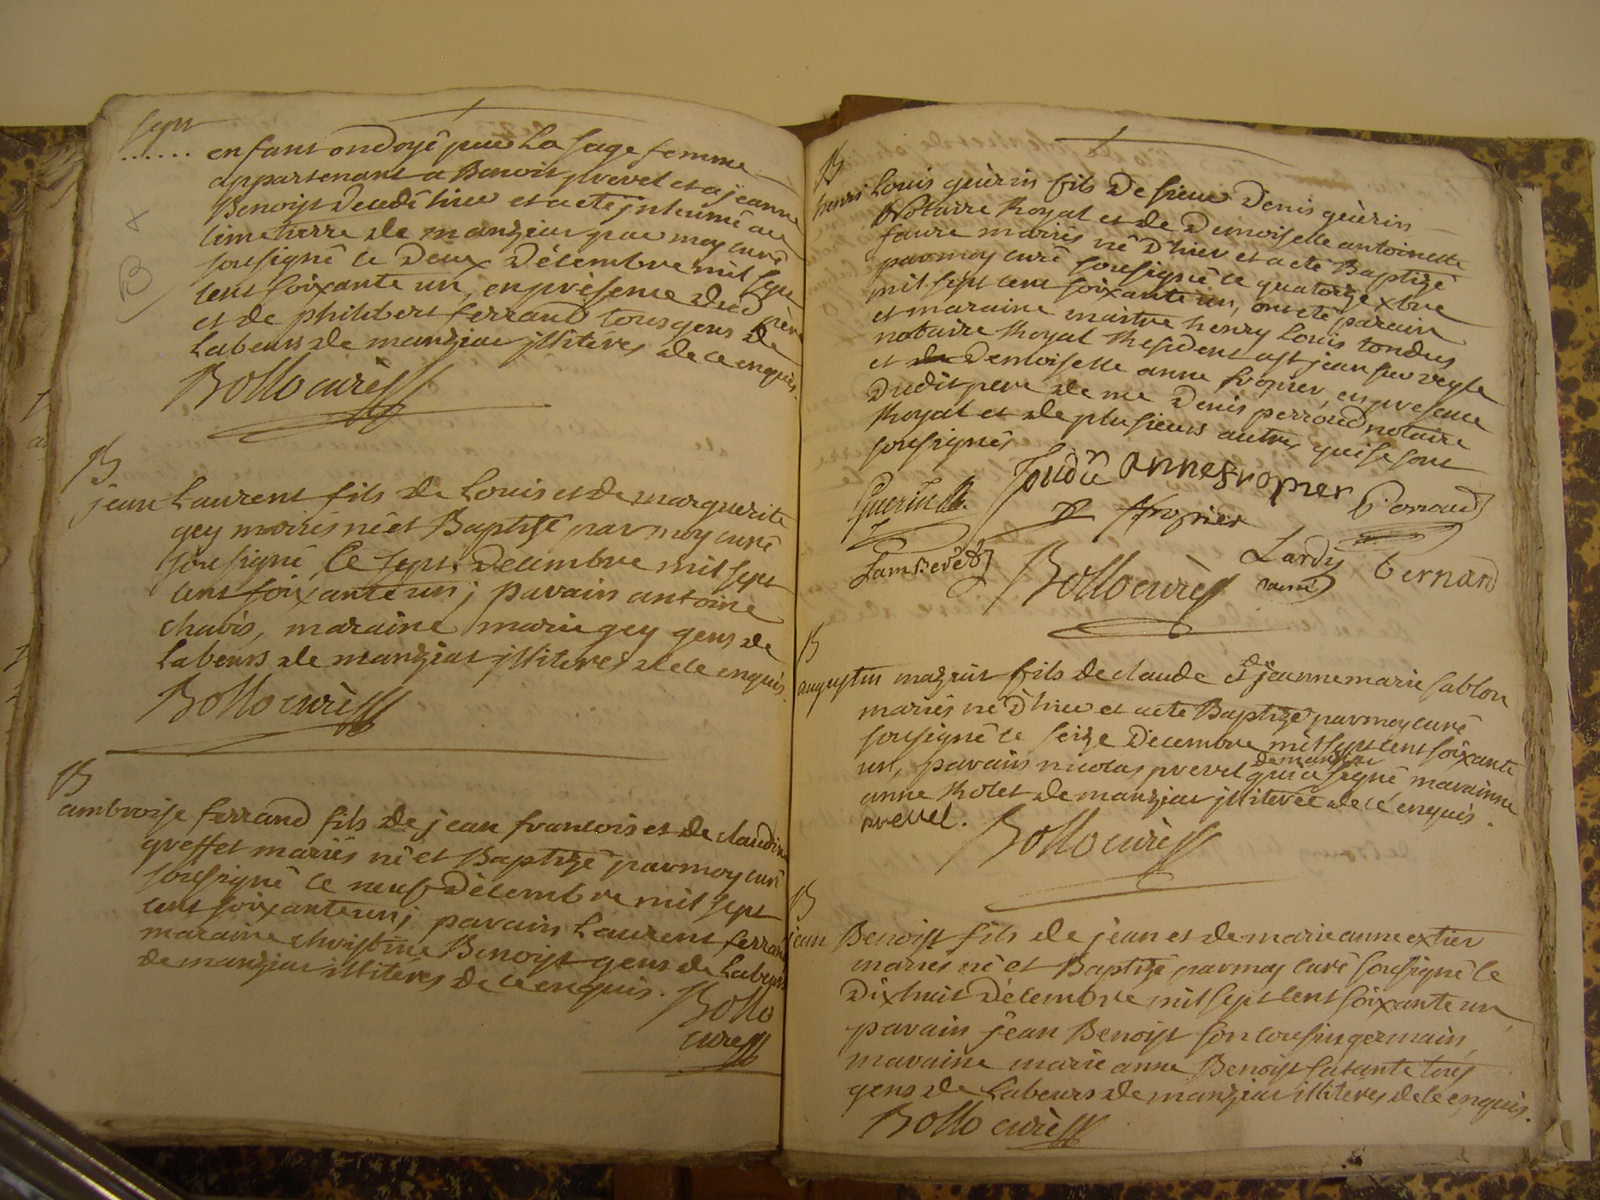 Sept
...... enfant ondoyé par la sage femme
appartenant a Benoit prevel et a jeanne
Benoist decedé hier et a eté inhumé au
cimetierre de manziat par moy curé
sousigné le deux décembre mil sept
cent soixante un, en présence dud père
et de philibert ferrand tous gens de
Labeurs de manziat illiteres de ce enquis.
Bollo curé
B
jean Laurent fils de Louis et de marguerite
gey mariés né et Baptizé par moy curé
sousigné le sept décembre mil sept
cent soixante un; parain antoine
chabis, maraine marie gey gens de
Labeurs de manziat illiteres de ce enquis.
Bollo curé
B
ambroise ferrand fils de jean francois et de claudine
greffet mariés né et Baptizé par moy curé
sousigné le neuf décembre mil sept
cent soixante un; parain Laurent ferrand
maraine christine Benoist gens de Labeurs
de manziat illiteres de ce enquis.
Bollo
curé
B
henri Louis guèrin fils de sieur Denis guèrin
Notaire Royal et de Demoiselle antoinette
faure mariés né d'hier et a eté Baptizé
par moy curé sousigné le quatorze xbre
mil sept cent soixante un, ont eté parain
et maraine maitre henry Louis tondus
notaire Royal Resident a st jean sur veyle
et Demoiselle anne fropier, en presence
dudit pere de me Denis perroud notaire
Royal et de plusieurs autres qui se sont
sousignés
Guerin Tondu anne fropier Perroud
fropier
Lambert Bollo curé Lardy bernard
B
augustin mazuit fils de claude et de jeanne marie sablon
mariés né d'hier et a eté Baptizé par moy curé
sousigné le seize decembre mil sept cent soixante
un, parain nicolas prevel de manziat qui a signé maraine
anne Rolet de manziat illiterée de ce enquis.
prevel. Bollo curé
B
jean Benoist fils de jean et de marie anne extier
mariés né et Baptizé par moy curé sousigné le
dixhuit décembre mil sept cent soixante un,
parain jean Benoist son cousin germain,
maraine marie anne Benoist sa tante tous
gens de Labeurs de manziat illiteres de ce enquis.
Bollo curé